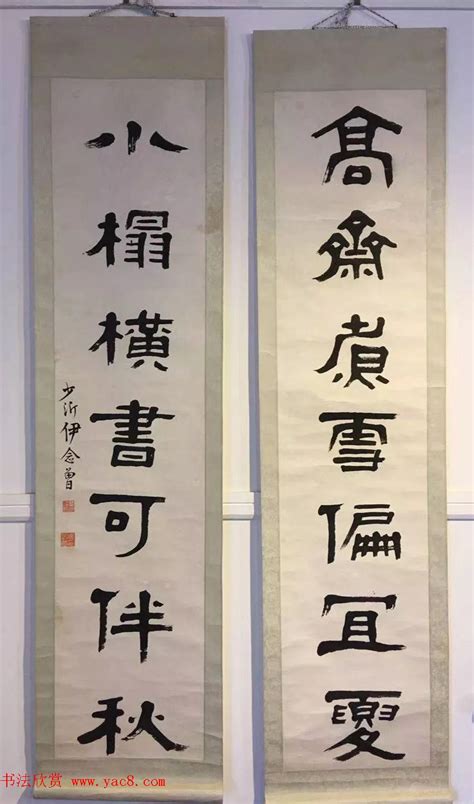 髙齋雪偏冝夏
小榻橫書可伴秋
少沂伊念曾
书法欣赏 www.yac8.com